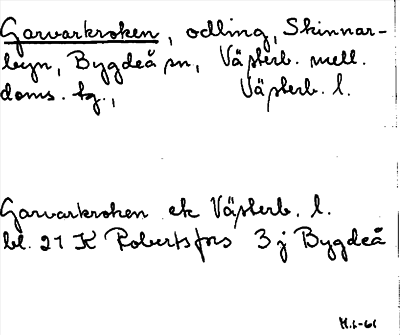 Garvarkroken, odling, Skinnar-
byn, Bygdeå sn, Västerb. mell.
doms. tg., Västerb. l.
Garvarkroken ek Västerb. l.
bl. 21 K Robertsfors 3 j Bygdeå